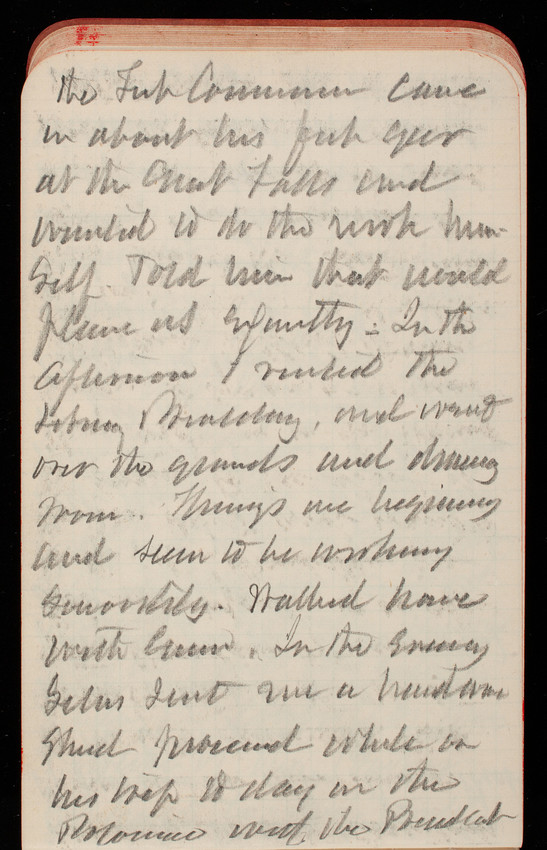 the Fish Commissioner came
in about his fish gear
at the Great Falls and
wanted to do the work him-
self. Told him that would
please us exactly - In the
Afternoon I visited the
Library Building, and went
over the grounds and drawing
room. Things are beginning
and seem to be working
smoothly. Walked home
with Green. In the evening
Selen sent me a handsome
Shad procured while on
his trip to day on the
Potomac with the President